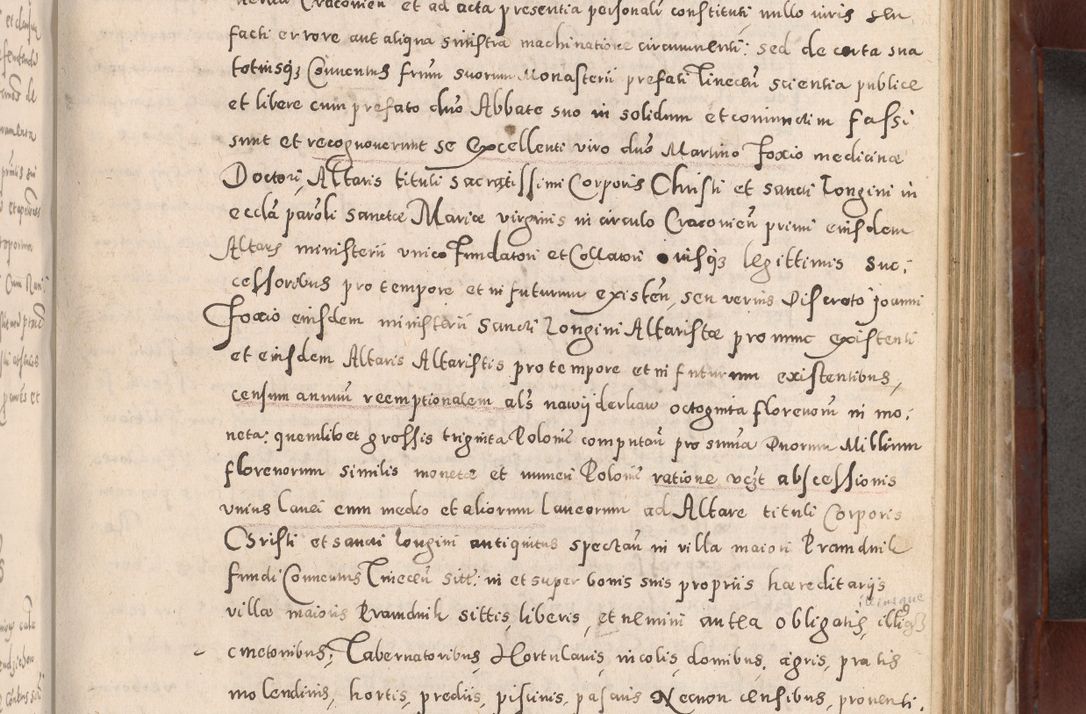 Cracovien̄ et ad acta presentia personali constituti nullo iuris seu
facti errore aut aliqua sinistra machinatione circumuenti: sed de certa sua
totiusq₃ Conuentus frūm suorum Monasterii prefati Tinecen̄ scientia publice
et libere cum prefato dno Abbate suo in solidum et coniunctim fassi
sunt et recognouerunt se excellenti viro dno Martino Foxio medicinæ
Doctori, Altaris tituli sacratissimi Corporis Christi et sancti Longini in
eccla paroli sanctæ Mariæ virginis in circulo Cracovien̄ primi eiusdem
Altaris ministerii vnico Fundatori et Collatori eiusq₃ legittimis suc:
cessoribus pro tempore et in futurum existen̄, seu verius Discreto Joanni
Foxio eiusdem ministerii Sancti Longini Altaristæ pro nunc existenti
et eiusdem Altaris Altaristis pro tempore et in futurum existentibus,
censum annuū reemptionalem als nawyderkaw octoginta florenorū in mo:
neta: quemlibet grossis triginta Poloniē computan̄ pro summa Duorum Millium
florenorum similis monetæ et numeri Poloniē ratione vc̄zt abscessionis
vnius Lanei cum medio et aliorum Laneorum ad Altare tituli Corporis
Christi et sancti Longini antiquitus spectan̄ in villa maiori Prandnik
fundi Conuentus Tinecen̄ sitt: in et super bonis suis propriis hæreditariis
villæ maioris Prandnik sittis, liberis, et nemini antea obligatis,
cmetonibus, Tabernatoribus, Hortulanis, incolis, domibus, agris, pratis
molendinis, hortis, prediis, piscinis, pascuis Necnon censibus, prouenti: